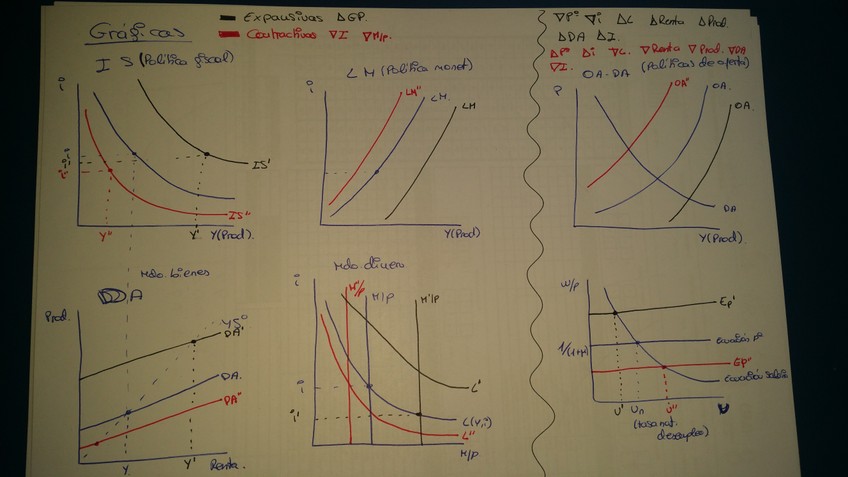 Gráficas
Expansivas ΔGP.
Contractivas ∇I ∇M/P.
∇Pº ∇i ΔC ΔRenta ΔProd.
ΔDA ΔI.
ΔPº Δi ∇C. ∇Renta ∇Prod. ∇DA
∇I.
IS (Política fiscal)
LM (Política monet)
OA-DA (Políticas de oferta)
i
IS'
IS''
i
i'
i''
Y''
Y'
Y(Prod).
i
LM''
LM.
LM
Y(Prod)
P
OA''
OA.
OA
DA
Y(Prod).
Mdo. bienes
DA
Prod.
45º
DA'
DA.
DA''
Y
Y'
Renta.
Mdo. dinero
i
M'/P
M/P
M'/P
i
i'
L'
L(Y,i)
L''
M/P
W/P
EP'
Ecuación Pº
1/(1+μ)
EP''
Ecuación Salarios
U'
Un
U''
(tasa nat.
desempleo)